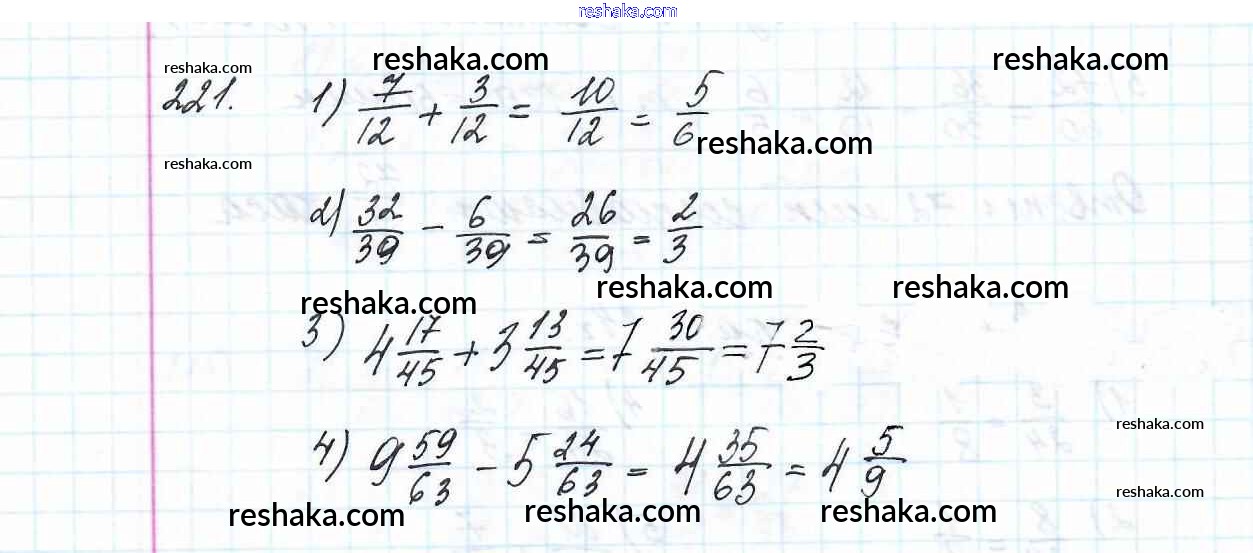 reshaka.com
reshaka.com reshaka.com
reshaka.com
221. 1) 7/12 + 3/12 = 10/12 = 5/6
reshaka.com
reshaka.com
2) 32/39 - 6/39 = 26/39 = 2/3
reshaka.com reshaka.com
reshaka.com
3) 4 17/45 + 3 13/45 = 7 30/45 = 7 2/3
reshaka.com
4) 9 59/63 - 5 24/63 = 4 35/63 = 4 5/9
reshaka.com
reshaka.com reshaka.com reshaka.com